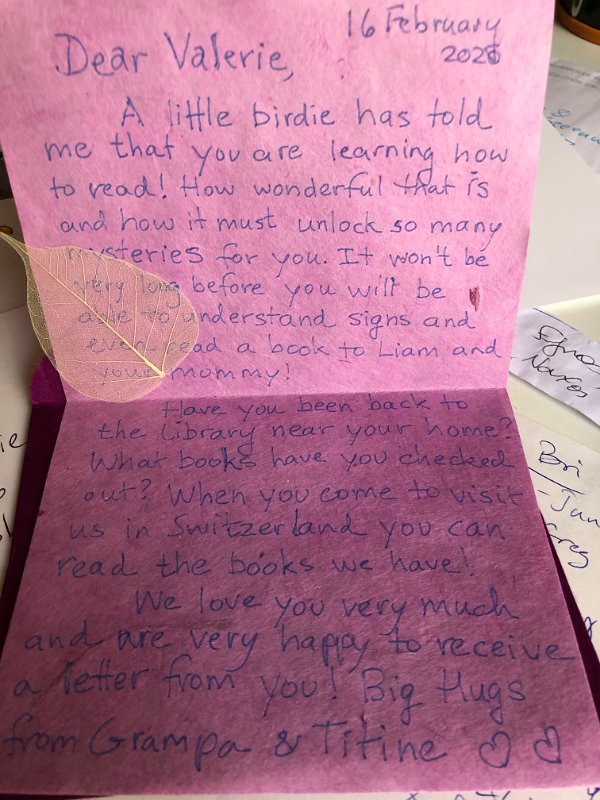 16 February
Dear Valerie,
A little birdie has told
me that you are learning how
to read! How wonderful that is
and how it must unlock so many
mysteries for you. It won't be
very long before you will be
able to understand signs and
even read a book to Liam and
your mommy!
Have you been back to
the Library near your home?
What books have you checked
out? When you come to visit
us in Switzerland you can
read the books we have!
We love you very much
and are very happy to receive
a letter from you! Big Hugs
from Grampa & Titine
Bri